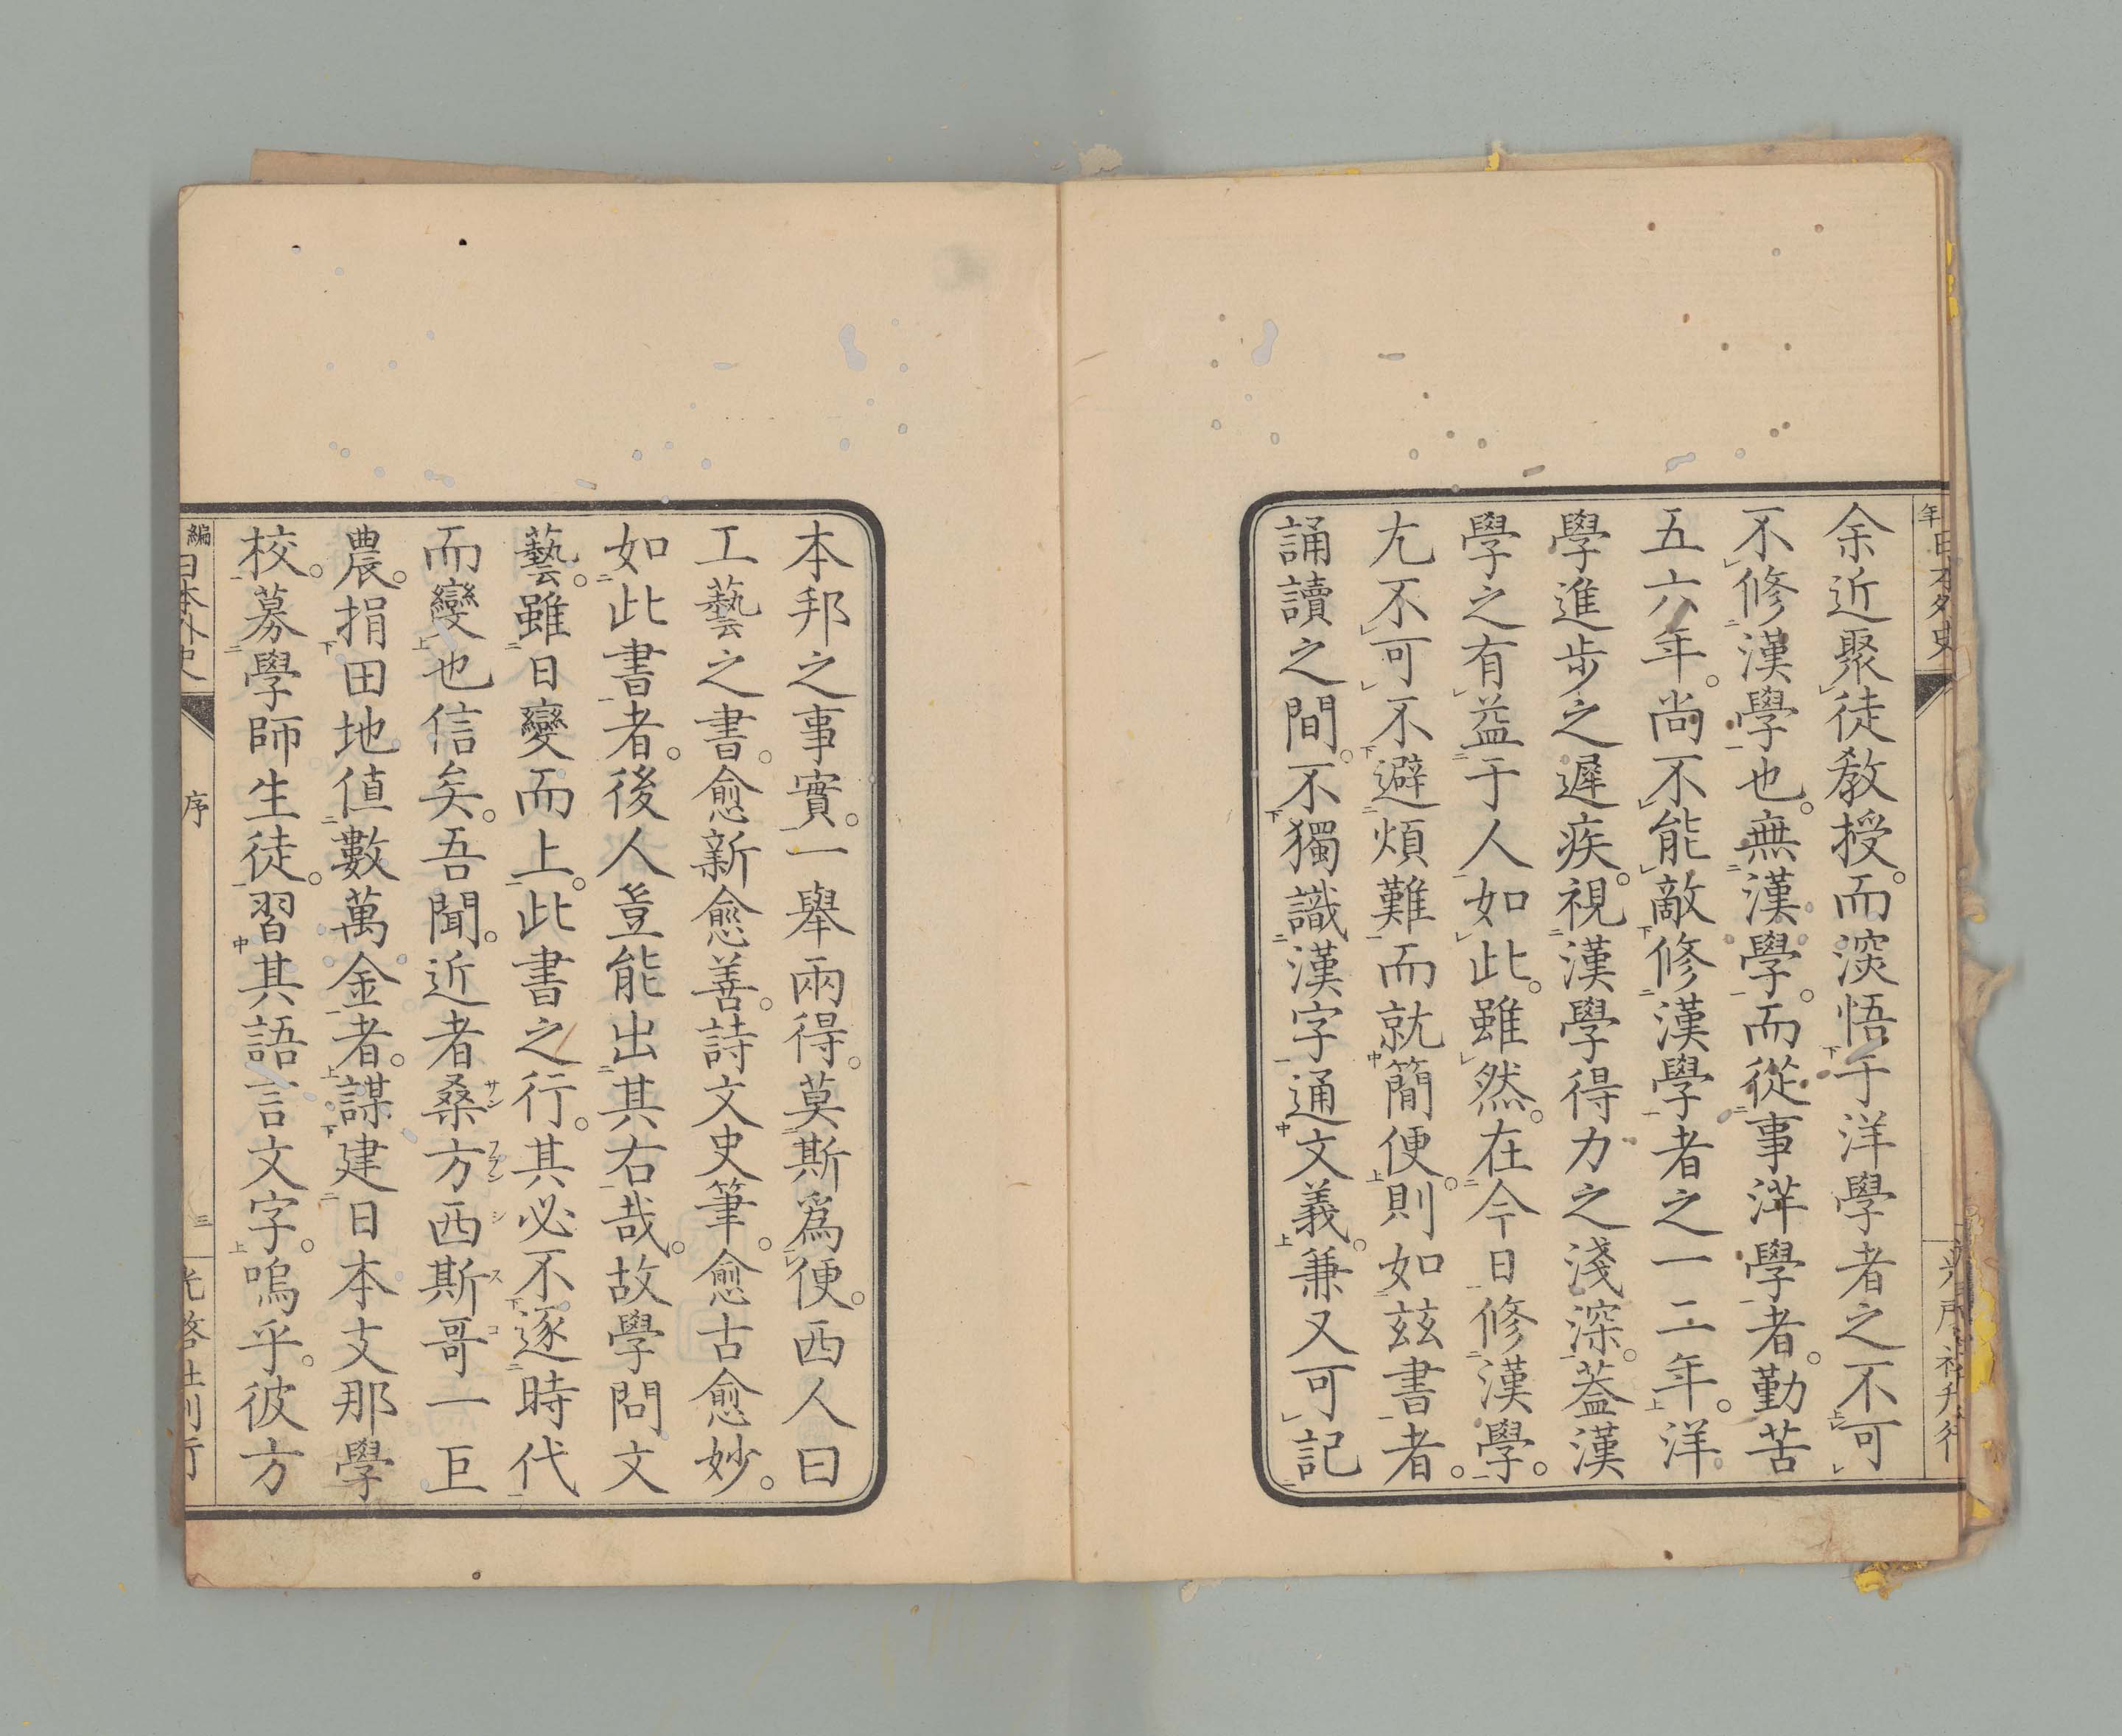 余近聚徒敎授。而深悟于洋學者之不可
不修漢學也。無漢學。而從事洋學者。勤苦
五六年。尚不能敵修漢學者之一二年。洋
學進步之遲疾。視漢學得力之淺深。蓋漢
學之有益于人如此。雖然。在今日修漢學。
尤不可不避煩難而就簡便。則如玆書者。
誦讀之間。不獨識漢字通文義。兼又可記
本邦之事實。一舉兩得。莫斯爲便。西人曰
工藝之書。愈新愈善。詩文史筆。愈古愈妙。
如此書者。後人豈能出其右哉。故學問文
藝。雖日變而上。此書之行。其必不逐時代
而變也信矣。吾聞。近者桑方西斯哥一巨
サンフランシスコ
農。捐田地値數萬金者。謀建日本支那學
校。募學師生徒。習其語言文字。嗚乎。彼方
編
日本外史
序
三